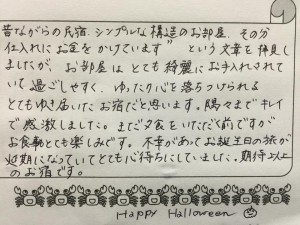 昔ながらの民宿、シンプルな構造のお部屋、その分
仕入れにお金をかけています” という文章を拝見し
ましたが、お部屋はとても綺麗にお手入れされて
いて過ごしやすく、ゆったり心を落ちつけられる
とてもゆき届いたお宿だと思います。隅々までキレイ
で感激しました。まだ夕食をいただく前ですが
お食事とても楽しみです。不幸があってお誕生日の旅が
延期になっていてとても心待ちにしていました。期待以上
のお宿です。
Happy Halloween